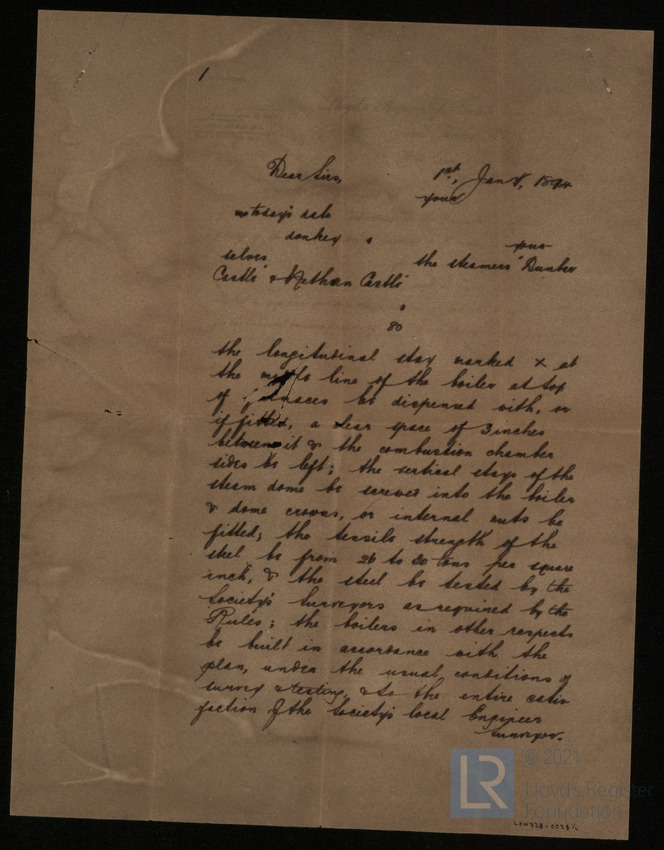 1
Dear Sirs,
1st, Jany, 1894
your
today's date
donkey
your
selves
the steamers "Dunbar
Castle" & Methven Castle"
80
the longitudinal stay marked × at
the middle line of the boiler at top
of furnaces be dispensed with, or
if fitted, a clear space of 3 inches
between it & the combustion chamber
sides be left; the vertical stays of the
steam dome be screwed into the boiler
& dome crowns, or internal nuts be
fitted; the tensile strength of the
steel be from 26 to 30 tons per square
inch, & the steel be tested by the
Society's Surveyors as required by the
Rules; the boilers in other respects
be built in accordance with the
plan, under the usual conditions of
survey & testing, & to the entire satis
faction of the Society's local Engineer
Surveyor.
LR
© 2021
Lloyd's Register
Foundation